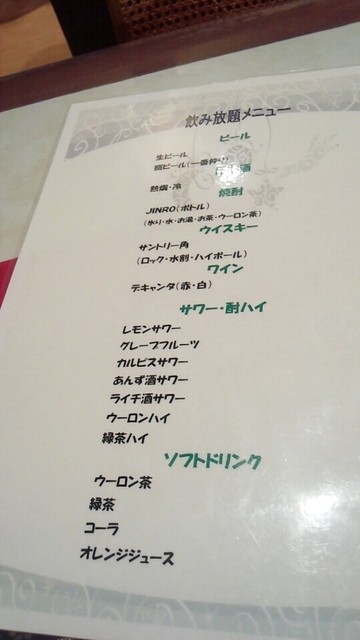 飲み放題メニュー
ビール
生ビール
瓶ビール(一番搾り)
酒
熱燗・冷
焼酎
JINRO(ボトル)
(氷り・水・お湯・お茶・ウーロン茶)
ウイスキー
サントリー角
(ロック・水割・ハイボール)
ワイン
デキャンタ(赤・白)
サワー・酎ハイ
レモンサワー
グレープフルーツ
カルピスサワー
あんず酒サワー
ライチ酒サワー
ウーロンハイ
緑茶ハイ
ソフトドリンク
ウーロン茶
緑茶
コーラ
オレンジジュース